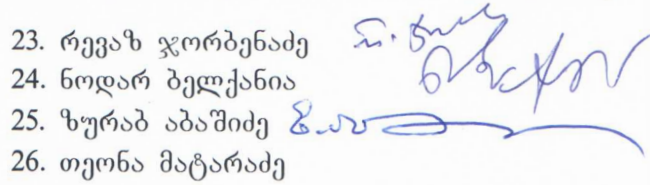 23. რევაზ ჯორბენაძე
24. ნოდარ ბელქანია
25. ზურაბ აბაშიძე
26. თეონა მატარაძე